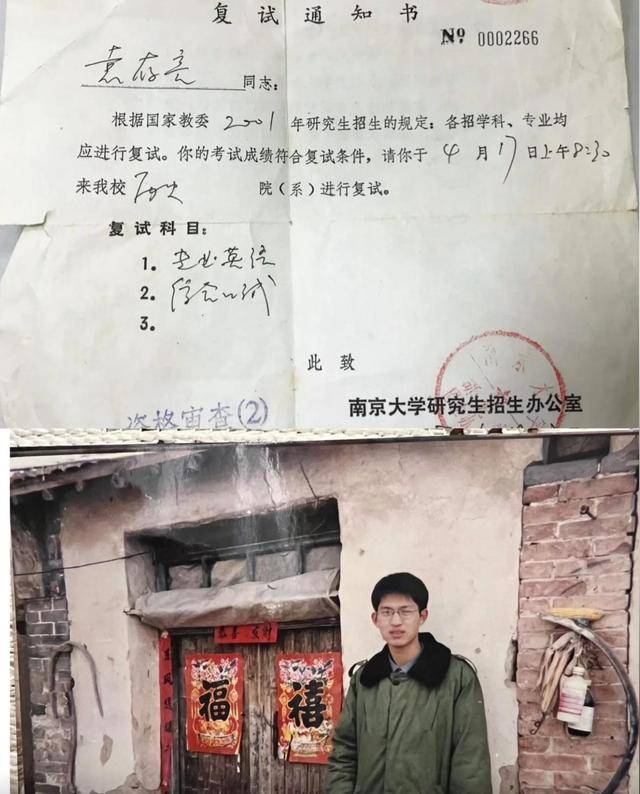 复试通知书
№ 0002266
袁存亮 同志：
根据国家教委 2001 年研究生招生的规定：各招学科、专业均
应进行复试。你的考试成绩符合复试条件，请你于 4 月 17 日上午8:30
来我校 历史 院（系）进行复试。
复试科目：
1. 专业英语
2. 综合口试
3.
此致
南京大学研究生招生办公室
资格审查(2)
恭喜发财
福
禧